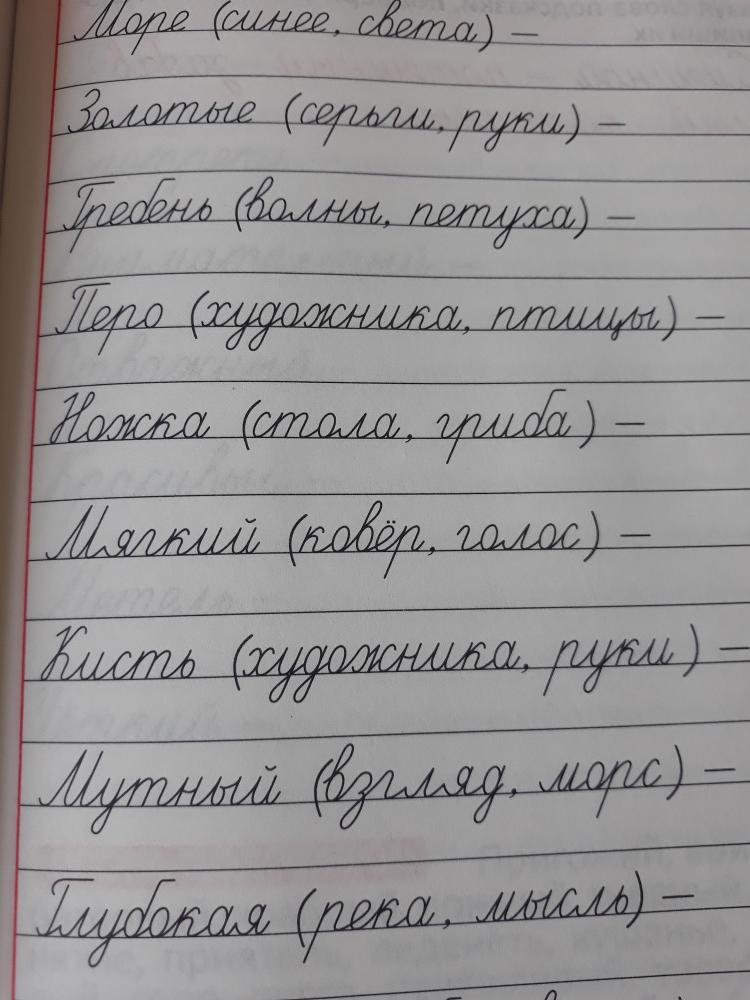 Море (синее, света) –
Золотые (серьги, руки) –
Гребень (волны, петуха) –
Перо (художника, птицы) –
Ножка (стола, гриба) –
Мягкий (ковёр, голос) –
Кисть (художника, руки) –
Мутный (взгляд, морс) –
Глубокая (река, мысль) –